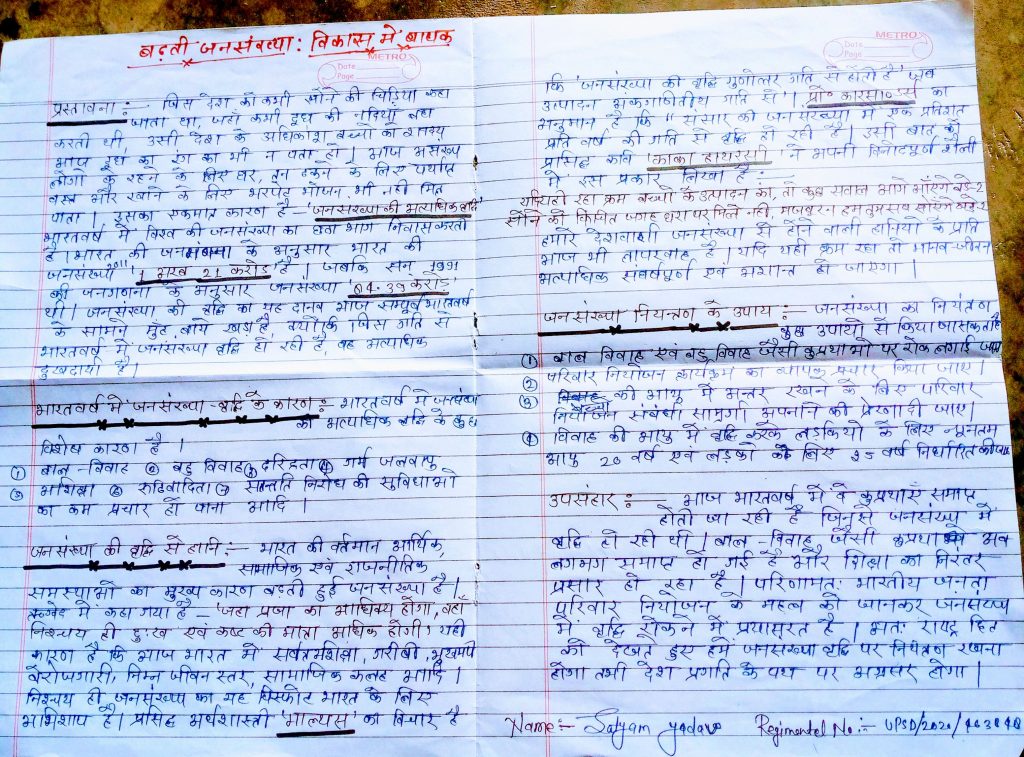 बढ़ती जनसंख्या : विकास में बाधक
METRO
Date
Page
प्रस्तावना :— जिस देश को कभी सोने की चिड़िया कहा
जाता था, जहाँ कभी दूध की नदियाँ बहा
करती थी, उसी देश के अधिकांश बच्चों को शायद
आज दूध का रंग का भी न पता हो। आज असंख्य
लोगों के रहने के लिए घर, तन ढकने के लिए पर्याप्त
वस्त्र और खाने के लिए भरपेट भोजन भी नहीं मिल
पाता। इसका एकमात्र कारण है – 'जनसंख्या की अत्याधिक वृद्धि'
भारतवर्ष में विश्व की जनसंख्या का छठा भाग निवास करती
है। भारत की जनसंख्या के अनुसार भारत की
जनसंख्या 2011 '1 अरब 21 करोड़' है। जबकि सन् 1991
की जनगणना के अनुसार जनसंख्या '84.39 करोड़'
थी। जनसंख्या की वृद्धि का यह दानव आज सम्पूर्ण भारतवर्ष
के सामने मुँह बाये खड़ा है, क्योंकि जिस गति से
भारतवर्ष में जनसंख्या वृद्धि हो रही है, वह अत्याधिक
दुखदायी है।
भारतवर्ष में जनसंख्या वृद्धि के कारण : भारतवर्ष में जनसंख्या
की अत्याधिक वृद्धि के कुछ
विशेष कारण है।
① बाल-विवाह ② बहु विवाह ③ दरिद्रता ④ गर्म जलवायु
⑤ अशिक्षा ⑥ रूढिवादिता ⑦ सन्तति निरोध की सुविधाओ
का कम प्रचार हो पाना आदि।
जनसंख्या की वृद्धि से हानि :— भारत की वर्तमान आर्थिक,
सामाजिक एवं राजनीतिक
समस्याओ का मुख्य कारण बढ़ती हुई जनसंख्या है।
ऋग्वेद में कहा गया है – 'जहा प्रजा का आधिक्य होगा, वहाँ
निश्चय ही दुःख एवं कष्ट की मात्रा अधिक होगी' यही
कारण है कि आज भारत में सर्वत्र अशिक्षा, गरीबी, भुखमरी
बेरोजगारी, निम्न जीवन स्तर, सामाजिक कलह आदि।
निश्चय ही जनसंख्या का यह विस्फोट भारत के लिए
अभिशाप है। प्रसिद्ध अर्थशास्त्री 'माल्थस' का विचार है
METRO
Date
Page
कि 'जनसंख्या की वृद्धि गुणोत्तर गति से होती है' जब
उत्पादन अंकगणितीय गति से'। प्रो० कारसाण्डर्स का
अनुमान है कि "संसार की जनसंख्या में एक प्रतिशत
प्रति वर्ष की गति से वृद्धि हो रही है। उसी बात को
प्रसिद्ध कवि 'काका हाथरसी' ने अपनी विनोदपूर्ण शैली
में इस प्रकार लिखा है :—
यदि यही रहा क्रम बच्चों के उत्पादन का, तो कुछ सवाल आगे आएँगे बड़े-2
सोने को किंचित जगह धरा पर मिले नही, मजबूरन हम तुम सब सोएंगे खड़े-2
हमारे देशवासी जनसंख्या में होने वाली हानियों के प्रति
आज भी लापरवाह है। यदि यही क्रम रहा तो मानव-जीवन
अत्याधिक संघर्षपूर्ण एवं अशान्त हो जाएगा।
जनसंख्या नियन्त्रण के उपाय :— जनसंख्या का नियंत्रण
कुछ उपायों से किया जा सकता है
① बाल विवाह एवं बहु विवाह जैसी कुप्रथाओ पर रोक लगाई जाए
② परिवार नियोजन कार्यक्रम का व्यापक प्रचार किया जाए।
③ की आयु में अन्तर रखने के लिए परिवार
नियोजन संबंधी सामग्री अपनाने की प्रेरणा दी जाए।
④ विवाह की आयु में वृद्धि करके लड़कियो के लिए न्यूनतम
आयु 20 वर्ष एवं लड़को के लिए 25 वर्ष निर्धारित की जाए
उपसंहार :— आज भारतवर्ष में वे कुप्रथाएँ समाप्त
होती जा रही है जिनसे जनसंख्या में
वृद्धि हो रही थी। बाल-विवाह जैसी कुप्रथा अब
लगभग समाप्त हो गई है और शिक्षा का निरंतर
प्रसार हो रहा है। परिणामतः भारतीय जनता
परिवार नियोजन के महत्व को जानकर जनसंख्या
में वृद्धि रोकने में प्रयासरत है। अतः राष्ट्र हित
को देखते हुए हमें जनसंख्या वृद्धि पर नियंत्रण रखना
होगा तभी देश प्रगति के पथ पर अग्रसर होगा।
Name:- Satyam yadav Regimental No.:- UPSD/2020/